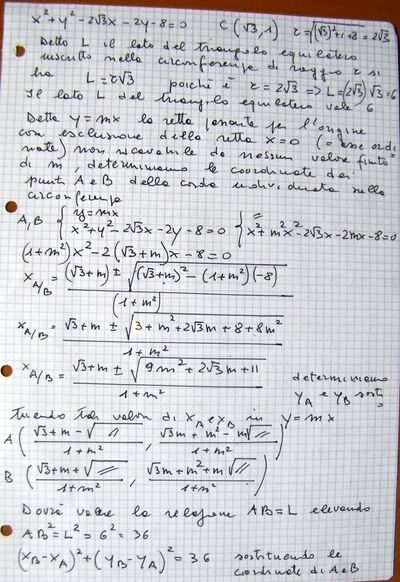 x²+y²-2√3x-2y-8=0   C(√3,1)   r=√(√3)²+1+8=2√3
Detto L il lato del triangolo equilatero
inscritto nella circonferenza di raggio r si
ha L=r√3 poiché è r=2√3 ⇒ L=(2√3)√3=6
Il lato L del triangolo equilatero vale 6
Detta y=mx la retta passante per l'origine
con esclusione della retta x=0 (= asse ordi
nate) non ricavabile da nessun valore finito
di m, determiniamo le coordinate dei
punti A e B della corda individuata nella
circonferenza
A,B { y=mx
x²+y²-2√3x-2y-8=0 { =
x²+m²x²-2√3x-2mx-8=0
(1+m²)x²-2(√3+m)x-8=0
x_A/B = (√3+m)±√(√3+m)²-(1+m²)(-8) / (1+m²)
x_A/B = √3+m±√3+m²+2√3m+8+8m² / 1+m²
x_A/B = √3+m±√9m²+2√3m+11 / 1+m²
determiniamo
y_A e y_B sosti=
tuendo tali valori di x_A e x_B in y=mx
A(√3+m-√〃 / 1+m², √3m+m²-m√〃 / 1+m²)
B(√3+m+√〃 / 1+m², √3m+m²+m√〃 / 1+m²)
Dovrà valere la relazione AB=L elevando
AB²=L²=6²=36
(x_B-x_A)²+(y_B-y_A)²=36 sostituendo le
coordinate di A e B